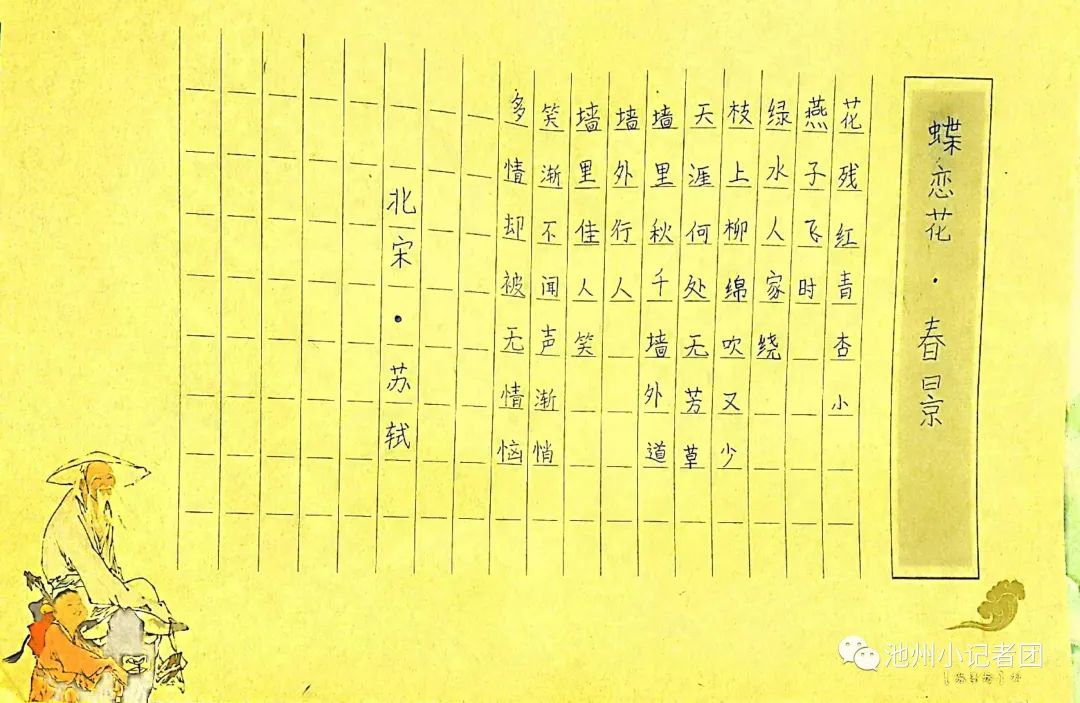 蝶恋花·春景
花残红青杏小
燕子飞时
绿水人家绕
枝上柳绵吹又少
天涯何处无芳草
墙里秋千墙外道
墙外行人
墙里佳人笑
笑渐不闻声渐悄
多情却被无情恼
北宋·苏轼
池州小记者团